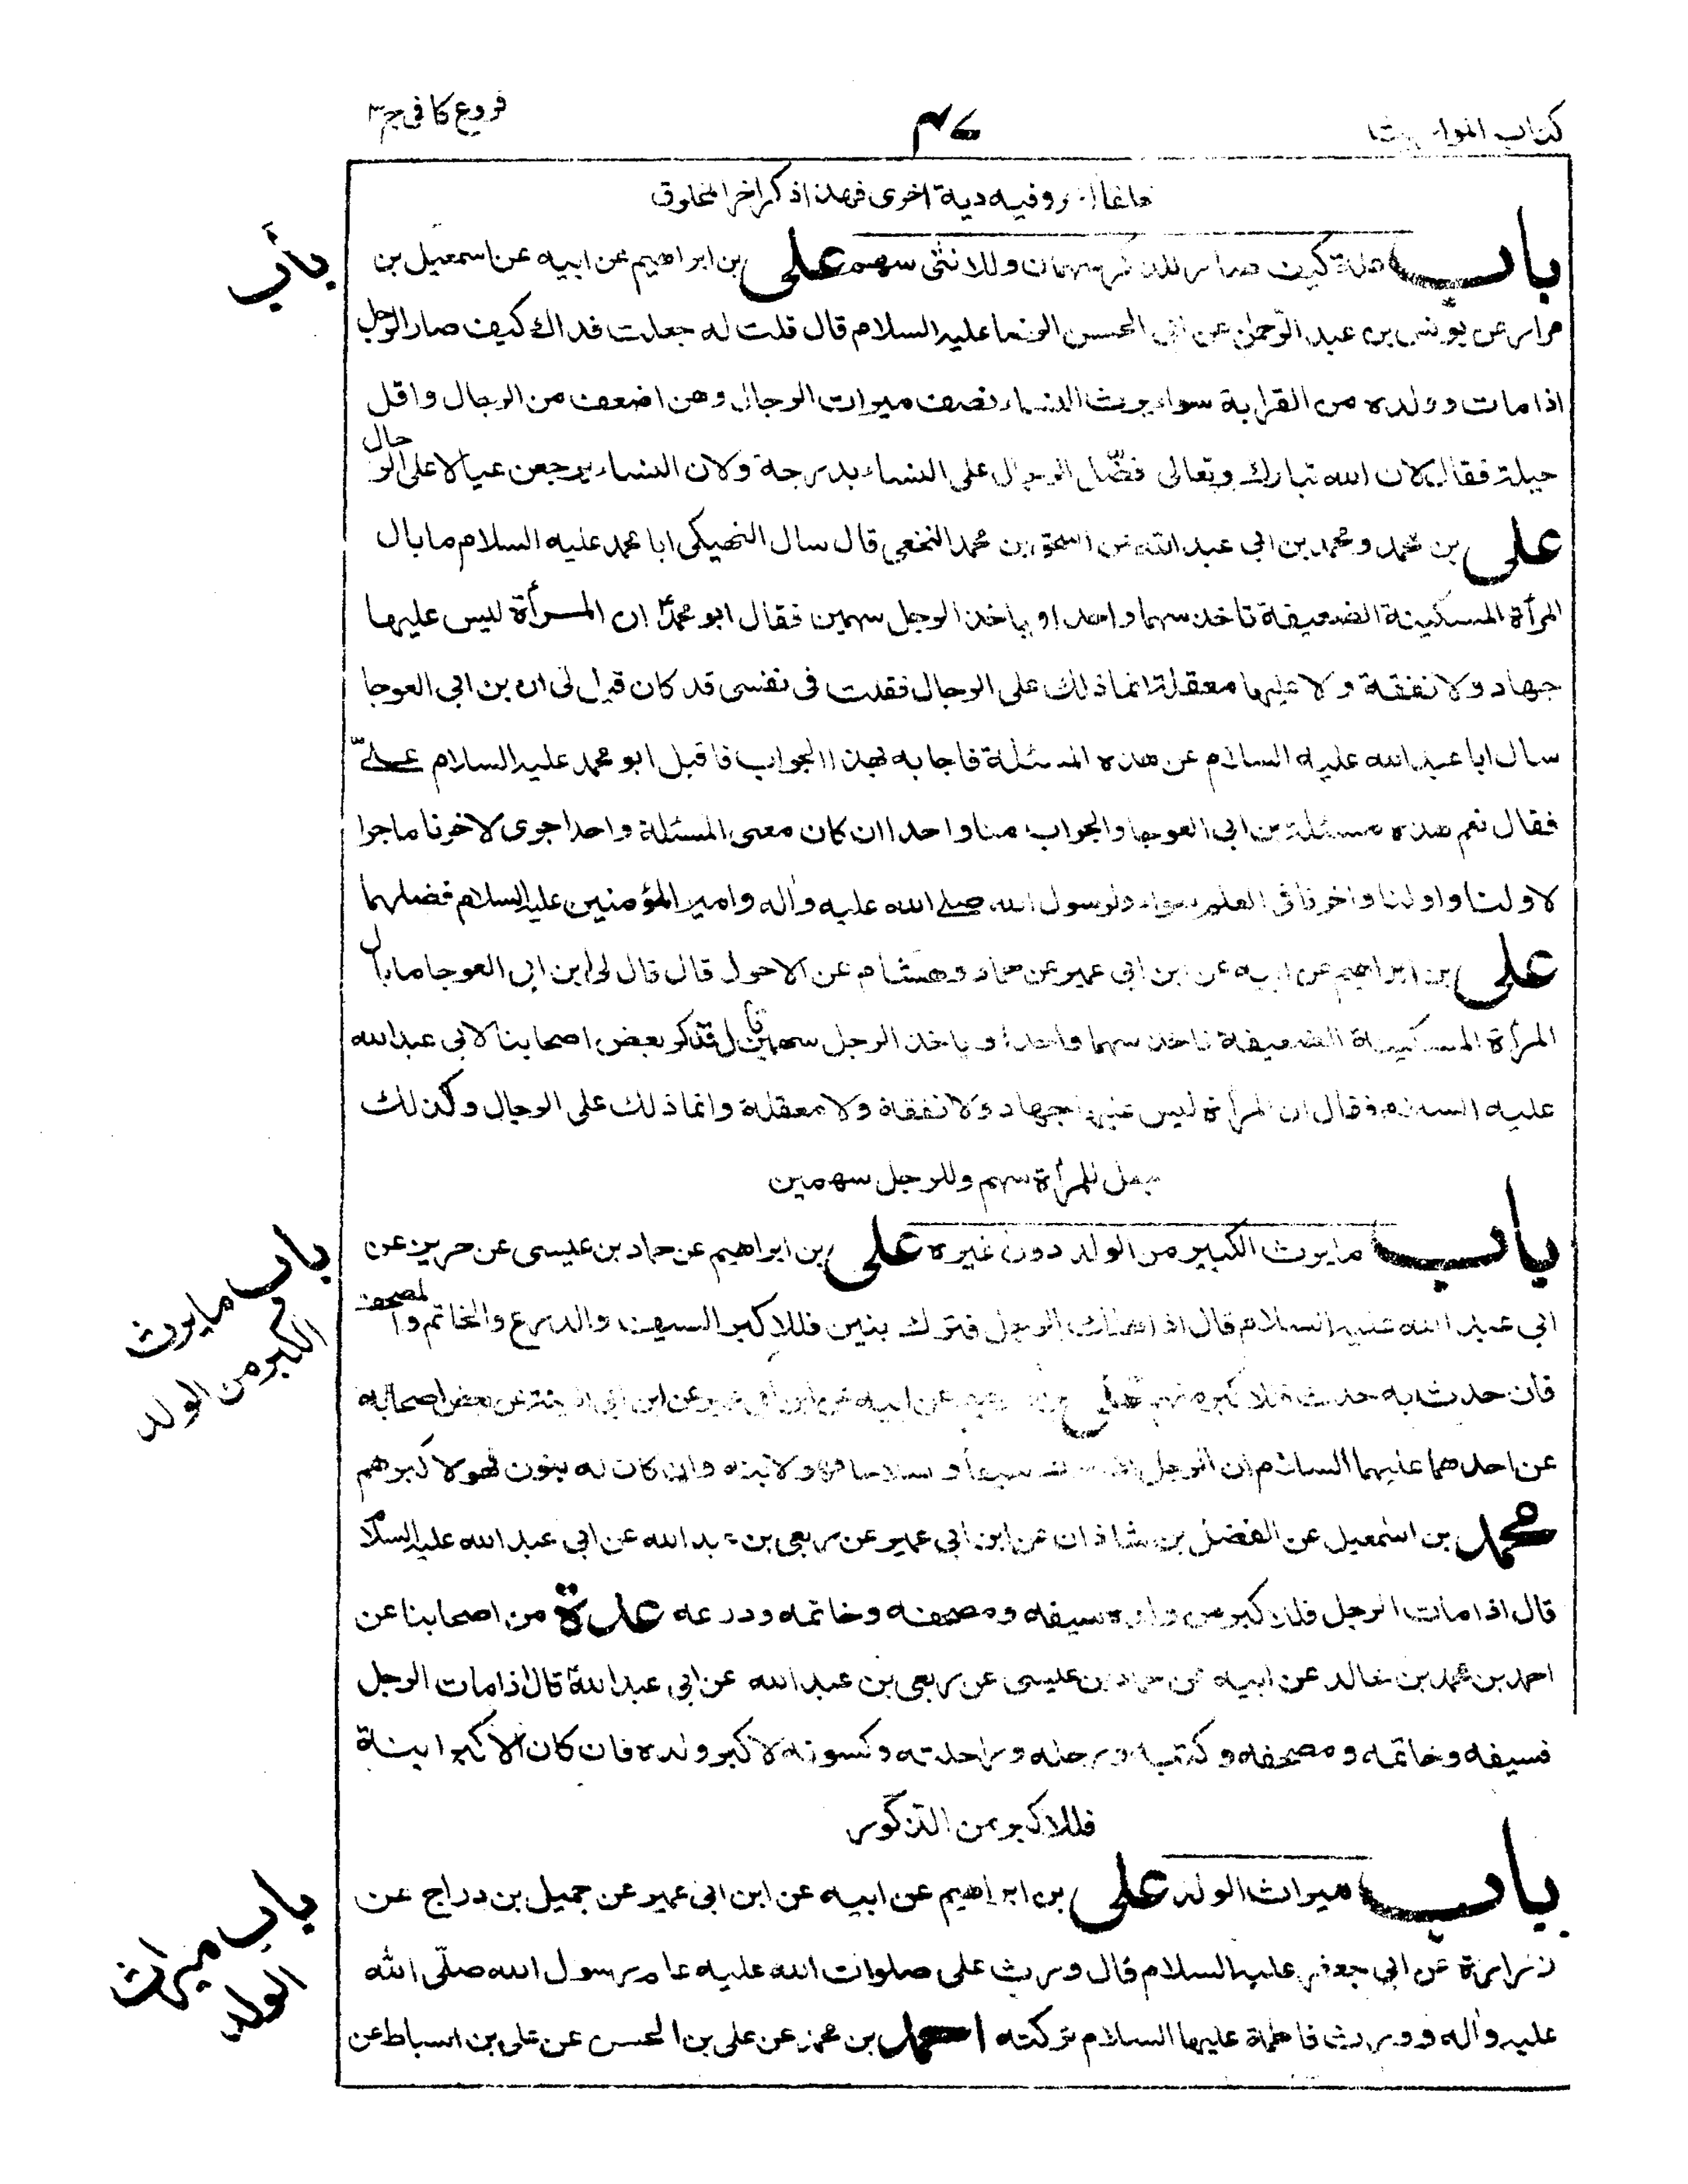 كتاب المواريث
٤٧
فروع كافى ج٣
وفيه دية اخرى فهذا ذكر اخر المخلوق
باب علة كيف صار للذكر سهمان وللانثى سهم على بن ابراهيم عن ابيه عن اسمعيل بن
باب
مرار عن يونس بن عبد الرحمن عن ابى الحسن الرضا عليه السلام قال قلت له جعلت فداك كيف صار الرجل
اذا مات وولده من القرابة سواء يرث النساء نصف ميراث الرجال وهن اضعف من الرجال واقل
حيلة فقال لان الله تبارك وتعالى فضّل الرجال على النساء بدرجة ولان النساء يرجعن عيالا على الرجال
على بن محمد ومحمد بن ابي عبد الله عن اسحق بن محمد النخعي قال سال النهيكى ابا محمد عليه السلام ما بال
المرأة المسكينة الضعيفة تاخذ سهما واحدا وياخذ الرجل سهمين فقال ابو محمدؑ ان المرأة ليس عليها
جهاد ولا نفقة ولا عليها معقلة انما ذلك على الرجال فقلت فى نفسى قد كان قيل لى ان بن ابي العوجا
سال ابا عبد الله عليه السلام عن هذه المسئلة فاجابه بهذا الجواب فاقبل ابو محمد عليه السلام علىّ
فقال نعم هذه مسئلة بن ابي العوجا والجواب منا واحد اان كان معنى المسئلة واحدا جرى لاخرنا ما جرا
لاولنا واولنا واخرنا في العلم سواء ولرسول الله صلى الله عليه وأله وامير المؤمنين عليه السلام فضلهما
على بن ابراهيم عن ابيه عن ابن ابي عمير عن حماد وهشام عن الاحول قال قال لى ابن ابي العوجا ما بال
المرأة المسكينة الضعيفة تاخذ سهما واحدا وياخذ الرجل سهمين قال فذكر بعض اصحابنا لابي عبد الله
عليه السلام فقال ان المرأة ليس عليها جهاد ولا نفقة ولا معقلة وانما ذلك على الرجال وكذلك
جعل للمرأة سهم وللرجل سهمين
باب ما يرث الكبير من الولد دون غيره على بن ابراهيم عن حماد بن عيسى عن حريز عن
باب ما يرث
الكبر من الولد
ابي عبد الله عليه السلام قال اذا هلك الرجل فترك بنين فللاكبر السيف والدرع والخاتم والمصحف
فان حدث به حدث فللاكبر منهم على بن ابراهيم عن ابيه عن ابن ابي عمير عن ابن اذينة عن بعض اصحابه
عن احدهما عليهما السلام ان الرجل اذا ترك سيفا وسلاحا فهو لابنه وان كان له بنون فهو لاكبرهم
محمد بن اسمعيل عن الفضل بن شاذان عن ابن ابي عمير عن ربعي بن عبد الله عن ابي عبد الله عليه السلام
قال اذا مات الرجل فللاكبر من ولده سيفه ومصحفه وخاتمه ودرعه عدة من اصحابنا عن
احمد بن محمد بن خالد عن ابيه عن حماد بن عيسى عن ربعي بن عبد الله عن ابي عبد اللهؑ قال اذا مات الرجل
فسيفه وخاتمه ومصحفه وكتبه ورحله وراحلته وكسوته لاكبر ولده فان كان الاكبر ابنة
فللاكبر من الذكور
باب ميراث الولد على بن ابراهيم عن ابيه عن ابن ابى عمير عن جميل بن دراج عن
باب ميراث
الولد
زرارة عن ابي جعفر عليه السلام قال ورث على صلوات الله عليه علم رسول الله صلّى الله
عليه وأله وورث فاطمة عليها السلام تركته احمد بن محمد عن على بن الحسن عن على بن اسباط عن